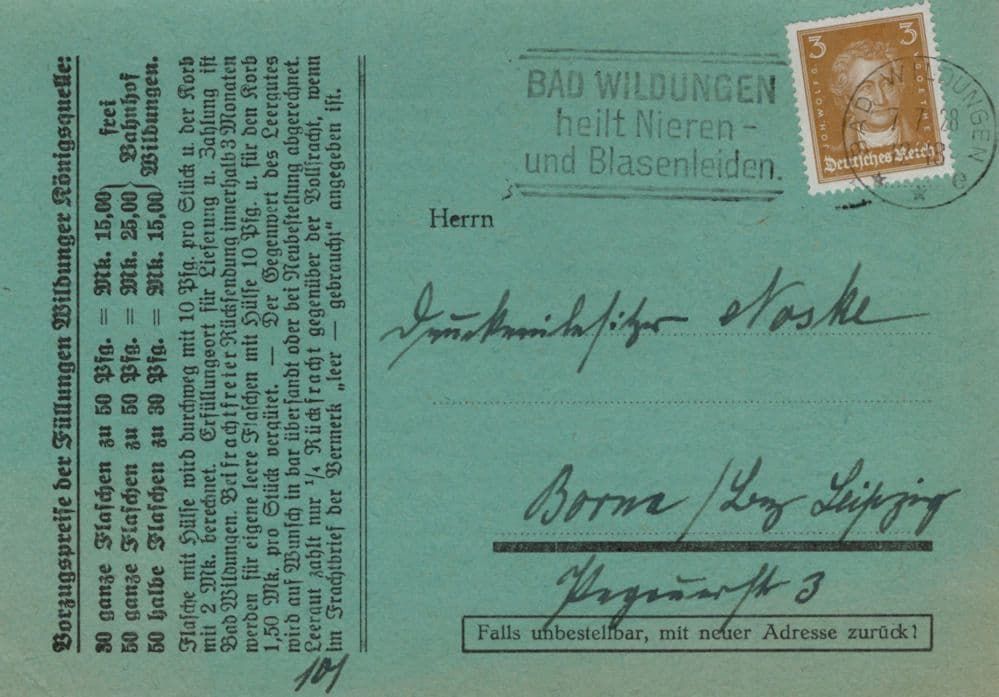 Vorzugspreise der Füllungen Wildunger Königsquelle:
30 ganze Flaschen zu 50 Pfg. = Mk. 15,00
50 ganze Flaschen zu 50 Pfg. = Mk. 25,00
50 halbe Flaschen zu 30 Pfg. = Mk. 15,00
frei
Bahnhof
Wildungen.
Flasche mit Hülse wird durchweg mit 10 Pfg. pro Stück u. der Korb
mit 2 Mk. berechnet. Erfüllungsort für Lieferung u. Zahlung ist
Bad Wildungen. Bei frachtfreier Rücksendung innerhalb 3 Monaten
werden für eigene leere Flaschen mit Hülse 10 Pfg. u. für den Korb
1,50 Mk. pro Stück vergütet. — Der Gegenwert des Leergutes
wird auf Wunsch in bar übersandt oder bei Neubestellung abgerechnet.
Leergut zahlt nur 1/4 Rückfracht gegenüber der Vollfracht, wenn
im Frachtbrief der Vermerk „leer — gebraucht" angegeben ist.
101
BAD WILDUNGEN
heilt Nieren-
und Blasenleiden.
3 3
JOH. WOLFG. V. GOETHE
Deutsches Reich
BAD WILDUNGEN
7.28
18
* * e
Herrn
Druckereibesitzer Noske
Borna / Bez Leipzig
Pegauerstr 3
Falls unbestellbar, mit neuer Adresse zurück!